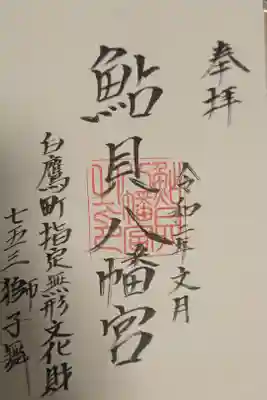 奉拝
令和二年文月
鮎貝八幡宮
白鷹町指定無形文化財
七五三獅子舞